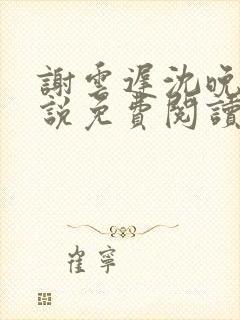 謝雲遲沈晚
說免費閱讀
崔寧